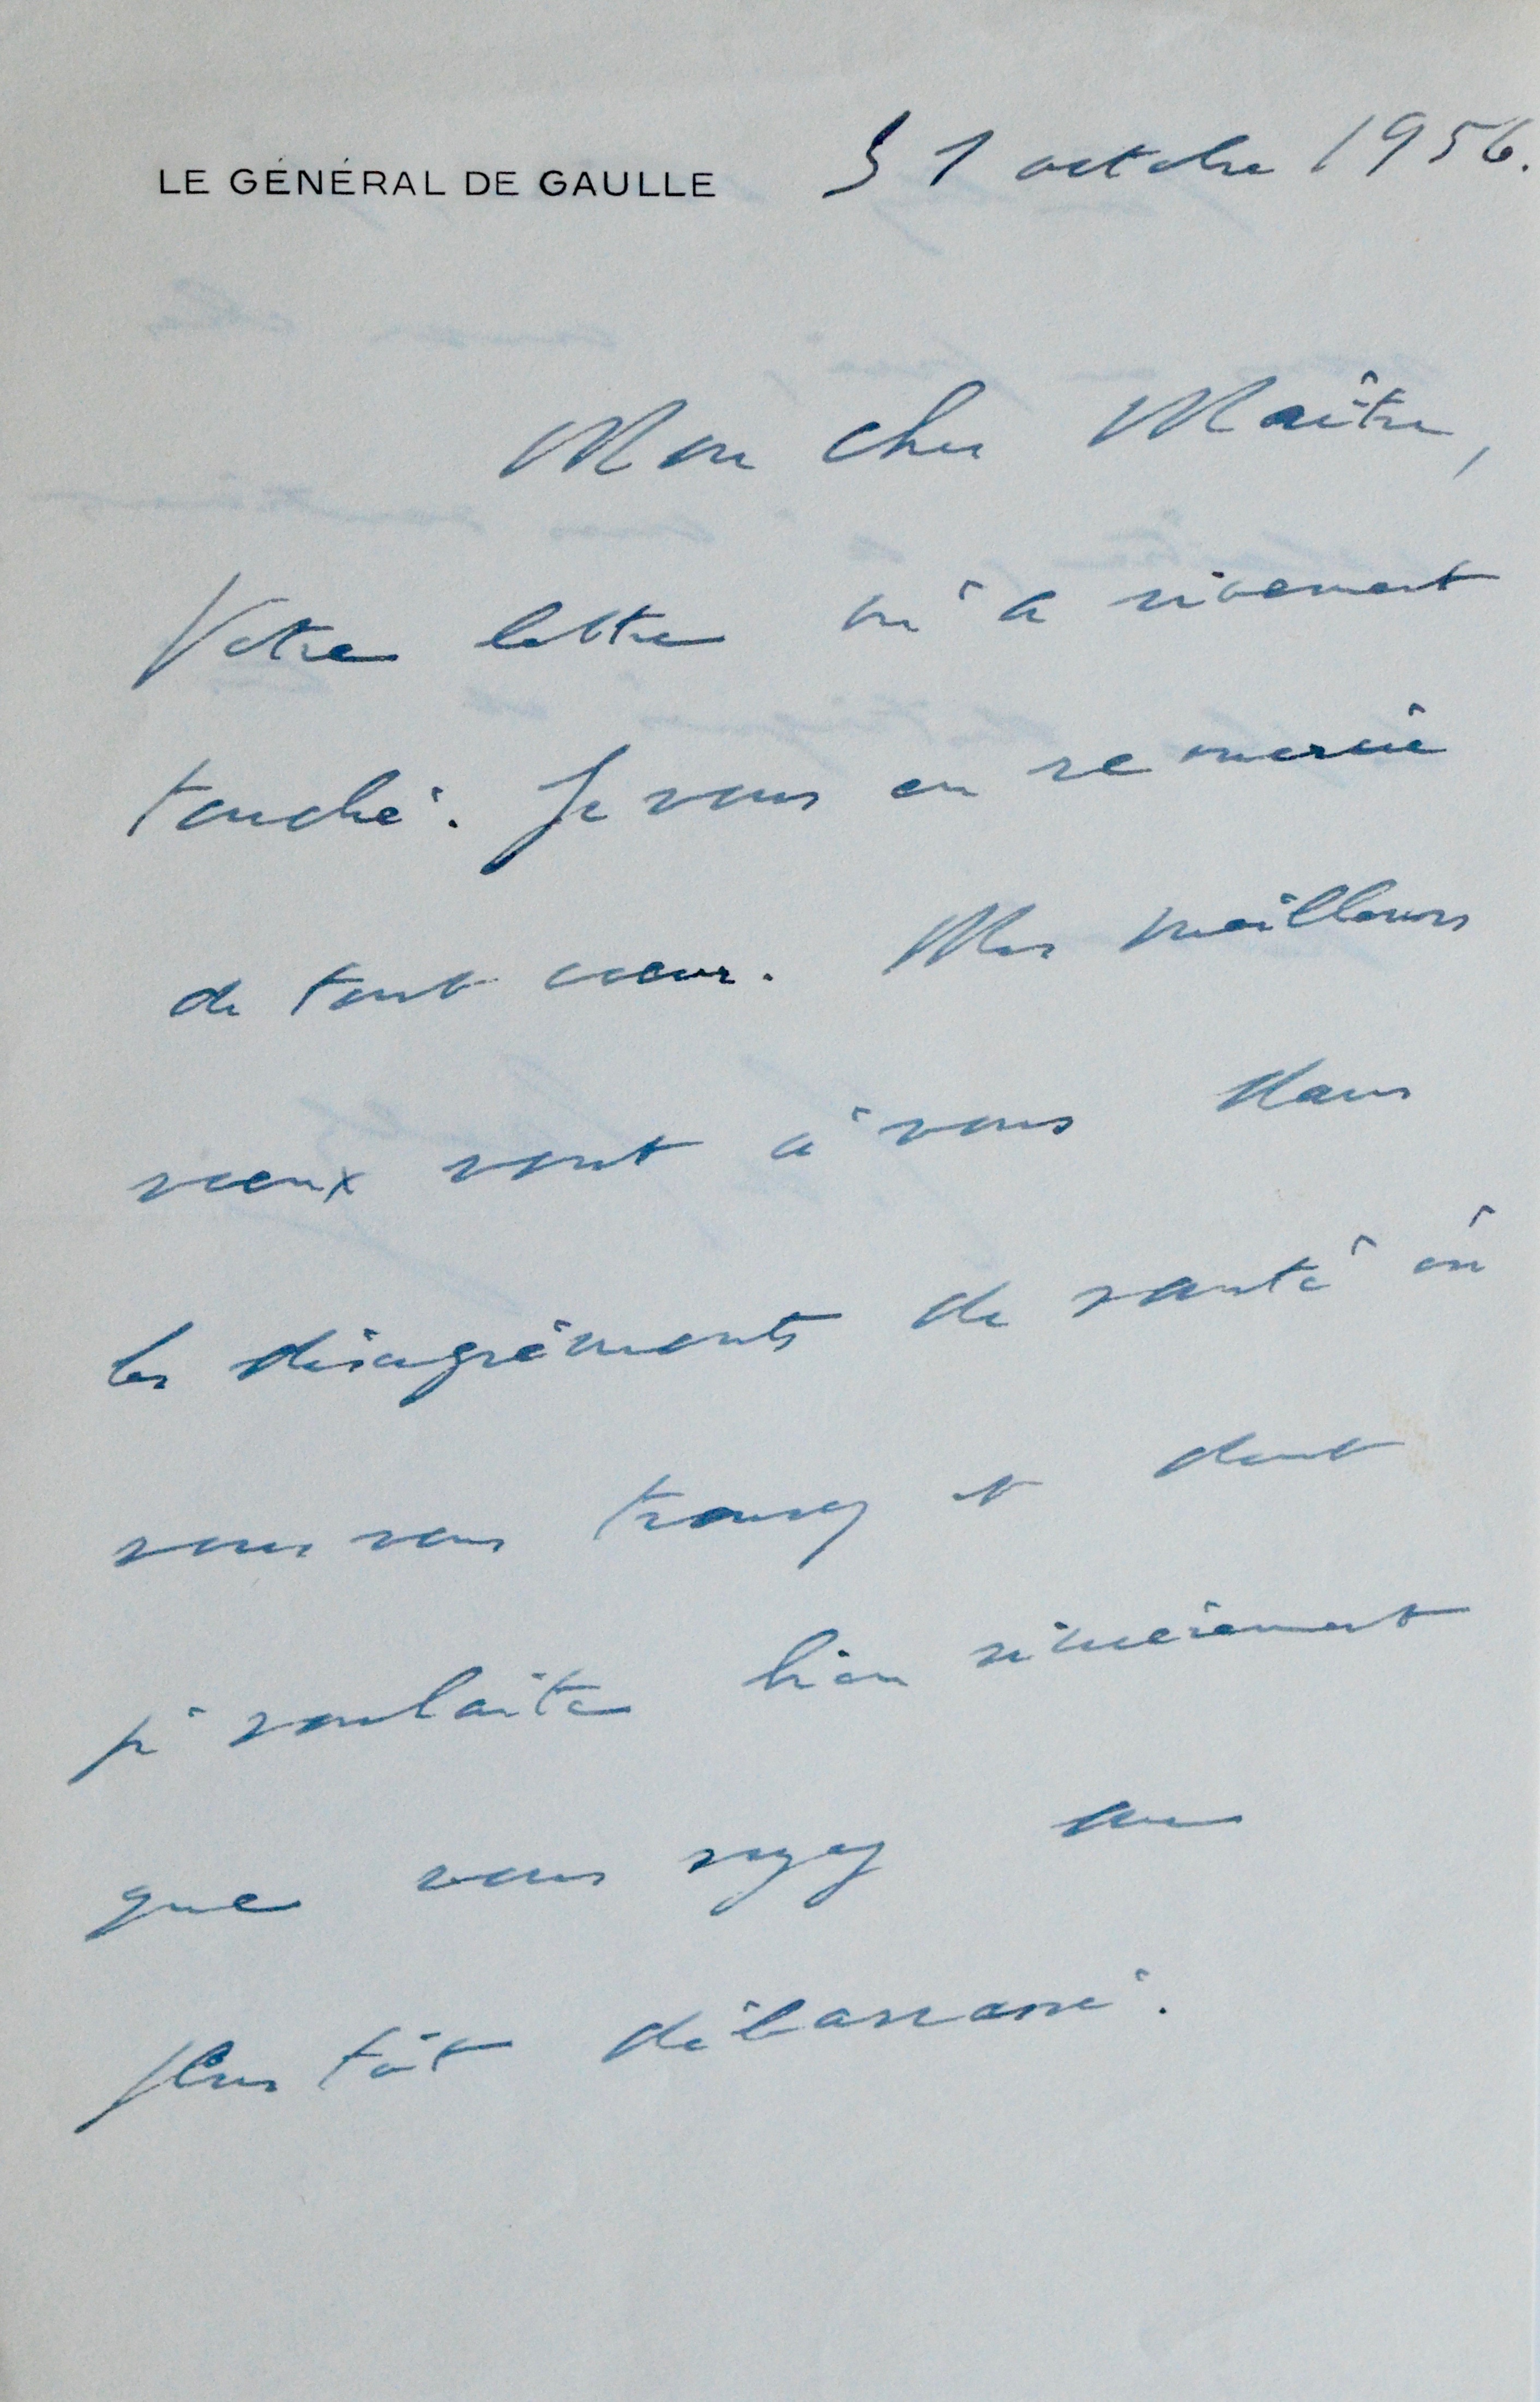 LE GÉNÉRAL DE GAULLE 31 octobre 1956.
Mon cher Maître,
Votre lettre m'a vivement
touché. Je vous en remercie
de tout coeur. Mes meilleurs
voeux vont à vous dans
les désagréments de santé où
vous vous trouvez et dont
je souhaite bien sincèrement
que vous soyez au
plus tôt débarrassé.